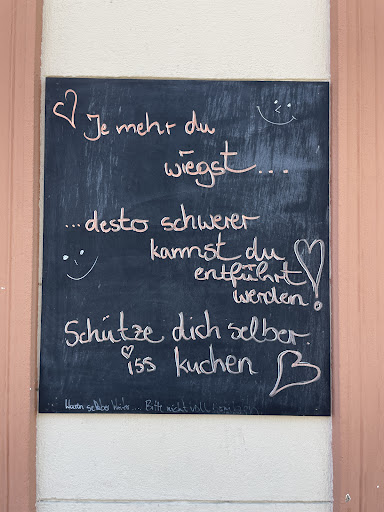 Je mehr du
wiegst...
...desto schwerer
kannst du
entführt
werden!
Schütze dich selber.
iss kuchen
Bitte nicht